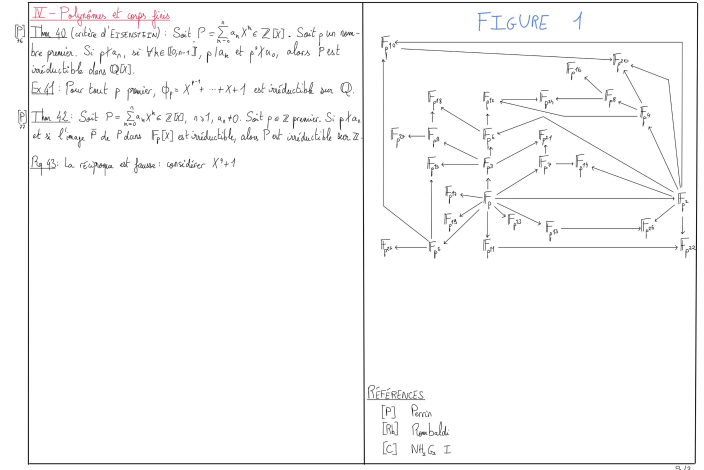 IV - Polynômes et corps finis
[P] Thm 40 (critère d'EISENSTEIN): Soit P = ∑_{k=0}^{n} a_k X^k ∈ ℤ[X]. Soit p un nom-
76 bre premier. Si p∤a_n, si ∀k∈⟦0,n-1⟧, p|a_k et p²∤a_0, alors P est
irréductible dans ℚ[X].
Ex 41: Pour tout p premier, ϕ_p = X^{p-1} + ... + X + 1 est irréductible sur ℚ.
[P] Thm 42: Soit P = ∑_{k=0}^{n} a_k X^k ∈ ℤ[X], n≥1, a_n≠0. Soit p∈ℤ premier. Si p∤a_n
77 et si l'image P̄ de P dans 𝔽_p[X] est irréductible, alors P est irréductible sur ℤ.
Rq 43: La réciproque est fausse: considérer X⁴+1
FIGURE 1
𝔽_{p^10}
𝔽_{p^20}
𝔽_{p^16}
𝔽_{p^18} 𝔽_{p^12} 𝔽_{p^24} 𝔽_{p^8}
𝔽_{p^4}
𝔽_{p^9} 𝔽_{p^6} 𝔽_{p^21}
𝔽_{p^15} 𝔽_{p^3} 𝔽_{p^7} 𝔽_{p^14}
𝔽_{p^17} 𝔽_p 𝔽_{p^2}
𝔽_{p^19} 𝔽_{p^23} 𝔽_{p^13} 𝔽_{p^26}
𝔽_{p^25} 𝔽_{p^5} 𝔽_{p^11} 𝔽_{p^22}
RÉFÉRENCES
[P] Perrin
[Rb] Rombaldi
[C] NH₂G₂ I